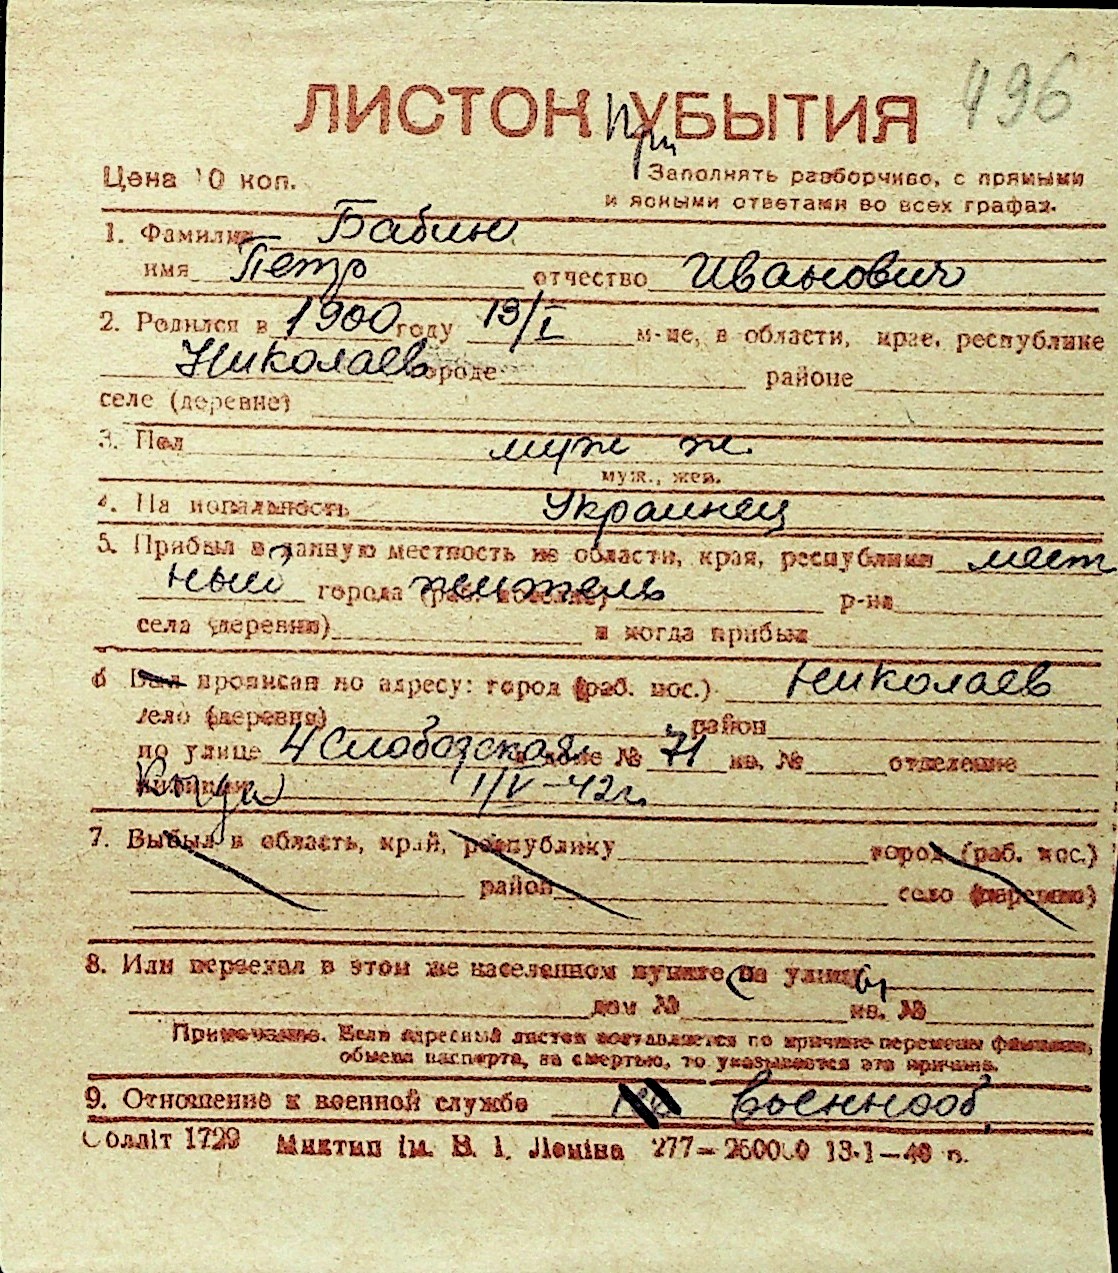 496
ЛИСТОК При УБЫТИЯ
Цена 10 коп.
Заполнять разборчиво, с прямыми
и ясными ответами во всех графах.
1. Фамилия Бабин
имя Петр отчество Иванович
2. Родился в 1900 году 13/I м-це, в области, крае, республике
Николаев городе районе
селе (деревне)
3. Пол муж ж.
муж., жен.
4. Национальность Украинец
5. Прибыл в данную местность из области, края, республики мест
ный города (раб. поселка) житель р-на
села (деревни) и когда прибыл
6 Был прописан по адресу: город (раб. пос.) Николаев
село (деревня) район
по улице 4 Слободская в доме № 71 кв. № отделение
милиции Когда 1/V-42г.
7. Выбыл в область, край, республику город (раб. пос.)
район село (деревню)
8. Или переехал в этом же населенном пункте на улицу
дом № кв. №
Примечание. Если адресный листок составляется по причине перемены фамилии,
обмена паспорта, за смертью, то указывается эта причина.
9. Отношение к военной службе военнооб.
Облліт 1729 Миктип ім. В. І. Леніна 277—250000 13-1—40 р.